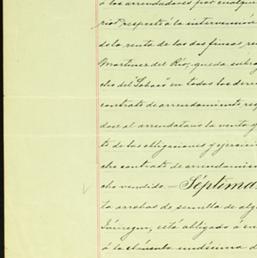 á los arrendadores por cualquier
respecto á la intervención
de la renta de las dos fincas, re
Martinez del Rio, queda subro
cho del "Sobaco" en todos los dere
contrato de arrendamiento res
dose al arrendatario la venta y
to de las obligaciones y ejercicio
cho contrato de arrendamien
cho vendido.—Séptima.
ta arrobas de semilla de alg
está obligado á en
á la cláusula undécima d